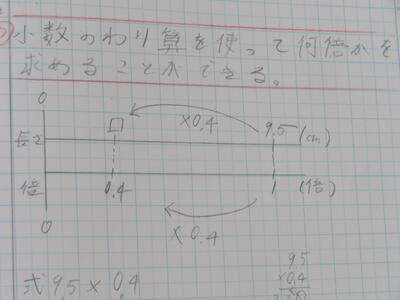 小数のわり算を使って何倍かを
求めることができる。
0
×0.4
□ 9.5 (cm)
長さ
倍 0.4 1 (倍)
0
×0.4
式 9.5×0.4
9.5
×0.4